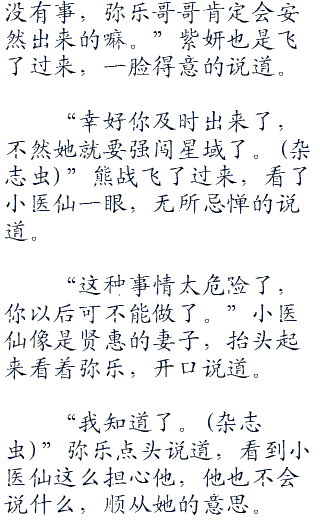 没有事，弥乐哥哥肯定会安
然出来的嘛。”紫妍也是飞
了过来，一脸得意的说道。
“幸好你及时出来了，
不然她就要强闯星域了。(杂
志虫)”熊战飞了过来，看了
小医仙一眼，无所忌惮的说
道。
“这种事情太危险了，
你以后可不能做了。”小医
仙像是贤惠的妻子，抬头起
来看着弥乐，开口说道。
“我知道了。(杂志
虫)”弥乐点头说道，看到小
医仙这么担心他，他也不会
说什么，顺从她的意思。